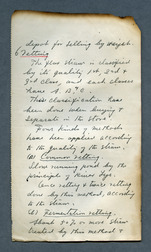 depot for selling by weight.
6 Retting.
The flax straw is classified
by its quality 1st, 2nd &
3rd class, and each classes
have A. B. C.
These classification have
been done when buying &
separate in the store.
Four kinds of methods
have been applied according
to the quality of the straw.
(a) Common retting.
Straw running pond by the
principle of River Lys.
Once retting & twice retting
done by this method, according
to the straw.
(b) Fermentation retting.
About % of raw straw
treated by this method &